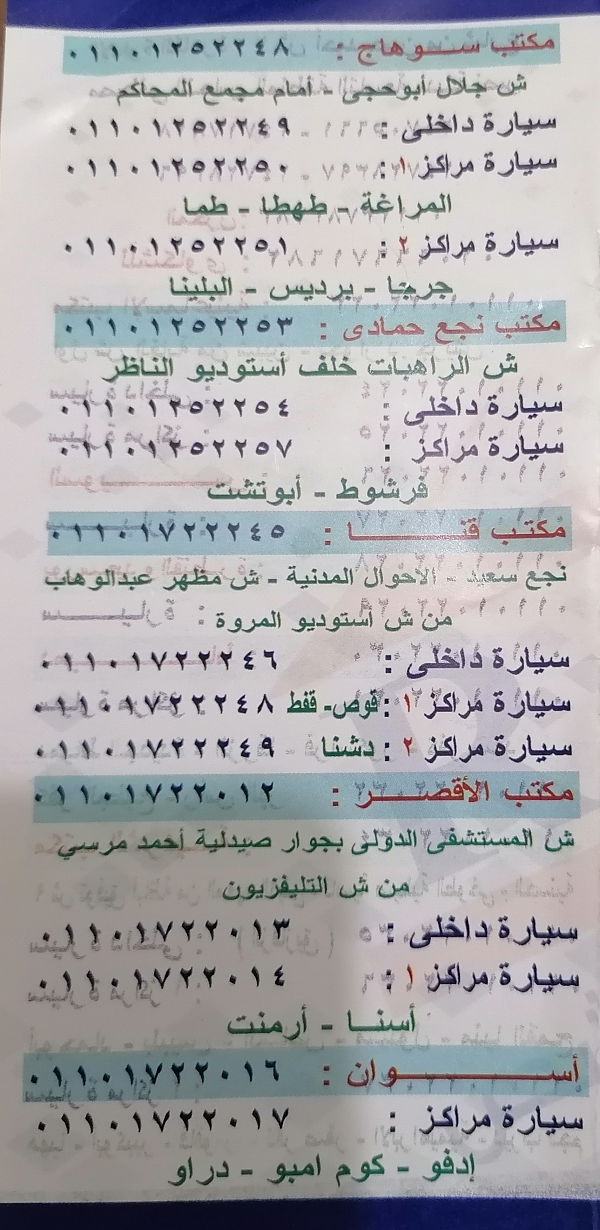 مكتب سوهاج : ٠١١٠١٢٥٢٢٤٨
ش جلال أبوحجى - أمام مجمع المحاكم
سيارة داخلى : ٠١١٠١٢٥٢٢٤٩
سيارة مراكز ١ : ٠١١٠١٢٥٢٢٥٠
المراغة - طهطا - طما
سيارة مراكز ٢ : ٠١١٠١٢٥٢٢٥١
جرجا - برديس - البلينا
مكتب نجع حمادى : ٠١١٠١٢٥٢٢٥٣
ش الراهبات خلف أستوديو الناظر
سيارة داخلى : ٠١١٠١٢٥٢٢٥٤
سيارة مراكز : ٠١١٠١٢٥٢٢٥٧
فرشوط - أبوتشت
مكتب قنا : ٠١١٠١٧٢٢٢٤٥
نجع سعيد - الأحوال المدنية - ش مظهر عبدالوهاب
من ش أستوديو المروة
سيارة داخلى : ٠١١٠١٧٢٢٢٤٦
سيارة مراكز ١ : قوص - قفط ٠١١٠١٧٢٢٢٤٨
سيارة مراكز ٢ : دشنا ٠١١٠١٧٢٢٢٤٩
مكتب الأقصر : ٠١١٠١٧٢٢٠١٢
ش المستشفى الدولى بجوار صيدلية أحمد مرسي
من ش التليفزيون
سيارة داخلى : ٠١١٠١٧٢٢٠١٣
سيارة مراكز ١ : ٠١١٠١٧٢٢٠١٤
أسنا - أرمنت
أسوان : ٠١١٠١٧٢٢٠١٦
سيارة مراكز : ٠١١٠١٧٢٢٠١٧
إدفو - كوم امبو - دراو